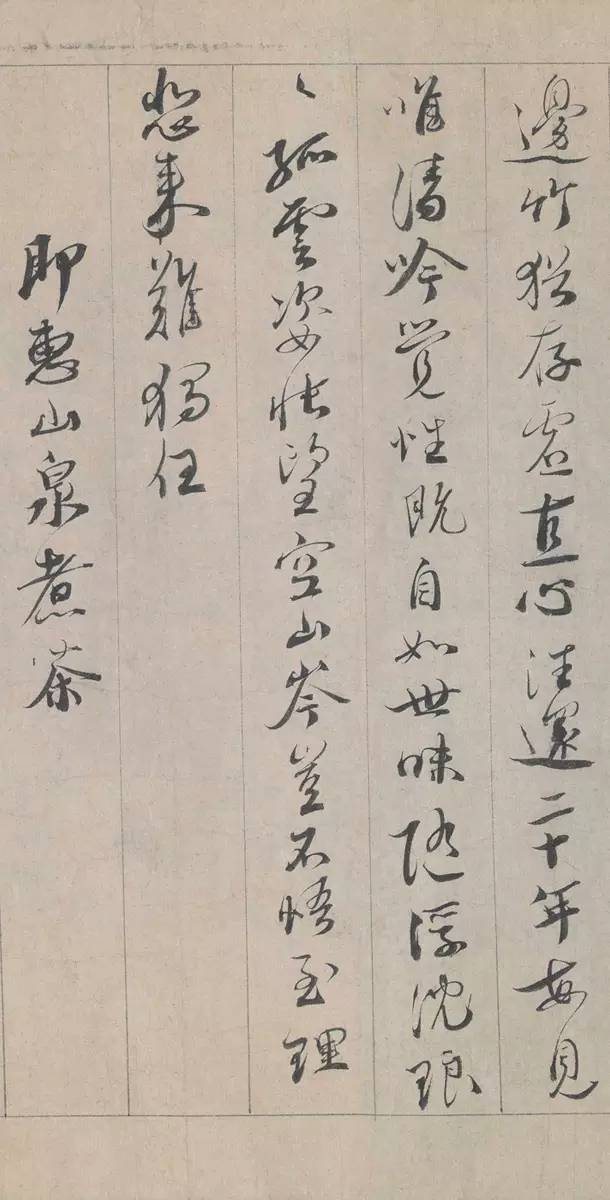 邊竹猶存虛直心往還二十年每見
唯清吟覺性既自如世味隨浮沈琅
〻孤雲姿悵望空山岑豈不悟至理
悲来難獨任
即惠山泉煮茶